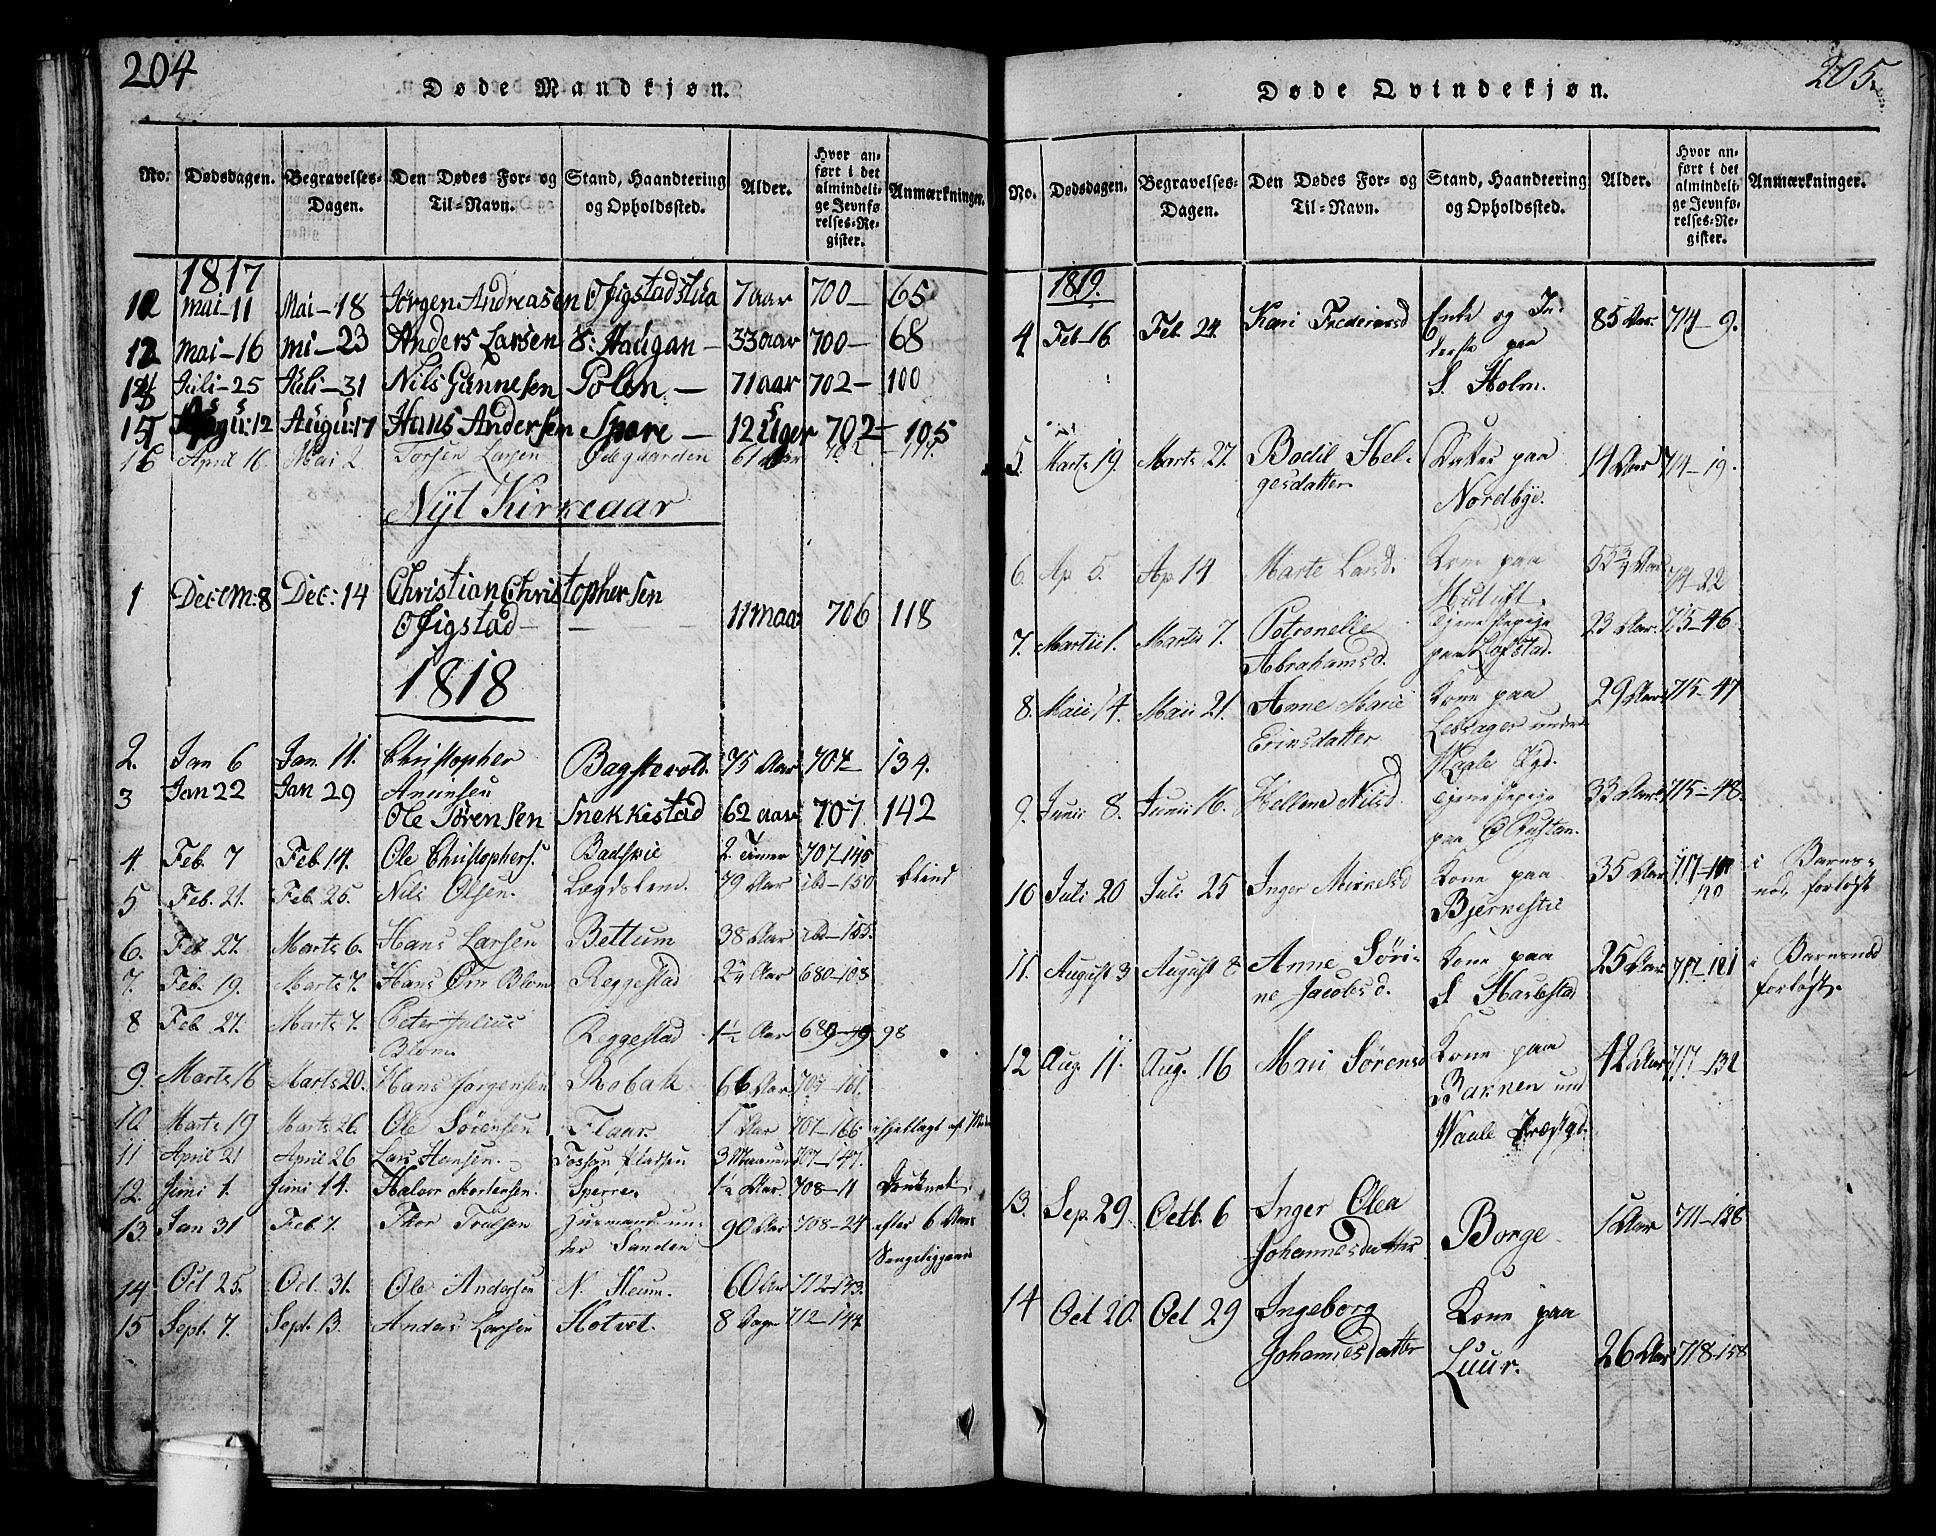 204
Døde Mandkjøn.
No. Dødsdagen. Begravelses-Dagen. Den Dødes For- og Til-Navn. Stand, Haandtering og Opholdssted. Alder. Hvor anført i det almindelige Jevnførelses-Register. Anmærkninger.
1817
Mai-11 Mai-18 Jørgen Andreasen Ofigstadstua 7 aar 700- 65
12 Mai-16 Mi-23 Anders Larsen S: Haugan- 33 aar 700- 68
Juli-25 Juli-31 Nils Gunnesen Polen- 71 aar 702- 100
15 Augu:12 Augu:17 Hans Andersen Spore- 12 Uger 702- 105
16 April 16. Mai 2 Torsen Larsen Ødegaarden 61 aar
Nÿt Kirkeaar
1 Decem:8 Dec:14 Christian Christophersen
Ofigstad- 11 maa: 706 118
1818
2. Jan 6 Jan 11. Christopher Bagstevold. 75 Aar 707 134.
3 Jan 22 Jan 29
Ole Sørensen Snekkestad 62 aar 707 142
4. Feb. 7 Feb. 14. Ole Christophers. Badskie 2 Timer 707-145
5 Feb. 21. Feb. 25. Nils Olsen. Lægdslem. 79 Aar ibd-150 blind
6. Feb 27. Marts 6. Hans Larsen Bettum 38 Aar ibd-155.
7. Feb. 19. Marts 7. Hans Orn Blom Reggestad 2¼ Aar 680-108
8 Feb. 27. Marts 7. Peter Julius
Blom. Reggestad 1½ Aar 98
9. Marts 16 Marts 20. Hans Jørgensen Robak 66 Aar 707-161.
10 Marts 19 Marts 26. Ole Sørensen Flaar. 1 Aar 707-166
11 April 21 April 26 Lars Hansen. Fossan Pladsen 3 Maaneder 707-147.
12. Juni 1. Juni 14. Halvor Mortensen. Sperre. Aar. 708-11 Druknet
13. Jan 31 Feb. 7. Thor Trulsen Huusmand un-
der Sanden 90 Aar 708-24 efter 6 Aars
Sengeliggen
14. Oct 25. Oct. 31. Ole Andersen N. Heum. 60 Aar 712-143.
15 Sept. 7. Sept. 13. Anders Larsen Hotvet. 8 Dage 712-144
205
Døde Qvindekjøn.
No. Dødsdagen. Begravelses-Dagen. Den Dødes For- og Til-Navn. Stand, Haandtering og Opholdssted. Alder. Hvor anført i det almindelige Jevnførelses-Register. Anmærkninger.
1819.
4 Feb. 16 Feb. 24. Kari Frederiksd Enke og In-
derste paa
S. Holm. 85 Aar. 714-9.
5. Marts 19. Marts 27. Bodil Hel-
gesdatter Datter paa
Nordbye. 14 Aar 714-19.
6. Ap. 5. Ap. 14 Marte Larsd. Kone paa
Hutuft. 55¾ Aar 714-22
7. Martii 1. Martii 7. Petronelle
Abrahamsd. Tjenestepige
paa Løfstad. 23 Aar. 715-46
8. Maii 14. Maii 21. Anne Marie
Ericsdatter Kone paa
under
Waale Pgd. 29 Aar 715-47
9. Junii 8. Junii 16. Hellene Nilsd. Tjenestepige
paa 33 Aar 715-48.
10 Juli 20 Juli 25 Inger Mickelsd Kone paa
Bjerkestie 35 Aar 717-
120 i Barns-
nød forløst
11. August 3 August 8 Anne Søri-
ne Jacobsd. Kone paa
S Haslestad 25 Aar 717-121 i Barnsnød
forløst.
12 Aug. 11. Aug. 16 Mari Sørensd Kone paa
Bakken und
Waale Præstgd. 42 Aar 717-132
13. Sep. 29. Octb. 6 Inger Olea
Johannesdatter Borge 1 Aar 711-128
14 Oct 20. Oct 29 Ingeborg
Johannesdatter Kone paa
Luur. 26 Aar 718-158